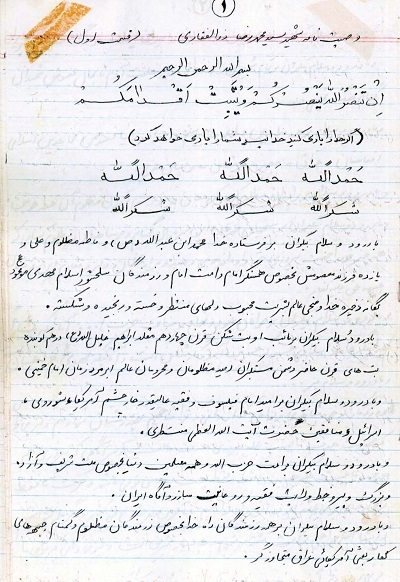 ۱
وصیت نامه شهید سید محمد رضا ذوالفقاری (قسمت اول)
بسم الله الرحمن الرحیم
اِنْ تَنْصُرُاللهَ یَنْصُرْکُمْ وَیُثَبِّتْ اَقْدامَکُمْ
(اگر خدا را یاری کنید خدا نیز شما را یاری خواهد کرد)
حَمْدُاللّه حَمْدُاللّه حَمْدُاللّه
شکراللّه شکراللّه شکراللّه
با درود و سلام بیکران بر فرستاده خدا محمد ابن عبدالله (ص) و فاطمه مظلوم و علی و
یازده فرزند معصومش بخصوص امام امت امام و رزمندگان سلحشور اسلام مهدی موعود (عج)
یگانه ذخیره خدا و منجی عالم بشریت محبوب دلهای منتظر و خسته و رنجیده و شکسته.
با درود و سلام بیکران بر نائب او بت شکن قرن چهاردهم مقلد ابراهیم خلیل الله (ع) درهم کوبنده
بت های قرن حاضر دشمن مستکبران امید مظلومان و محرومان عالم ابرمرد زمان امام خمینی.
و با درود و سلام بیکران بر امید امام فیلسوف و فقیه عالیقدر خار چشم آمریکا، شوروی،
اسرائیل و منافقین حضرت آیت الله العظمی منتظری.
و با درود و سلام بیکران بر امت حزب الله و همه مسلمین دنیا بخصوص ملت شریف و آزاده
و بزرگ و پیرو خط ولایت فقیه و روحانیت مبارز و آگاه ایران.
و با درود و سلام بیکران بر همه رزمندگان راه خدا بخصوص رزمندگان مظلوم و گمنام جبهه های
کفار بعثی آمریکائی عراق متجاوزگر.